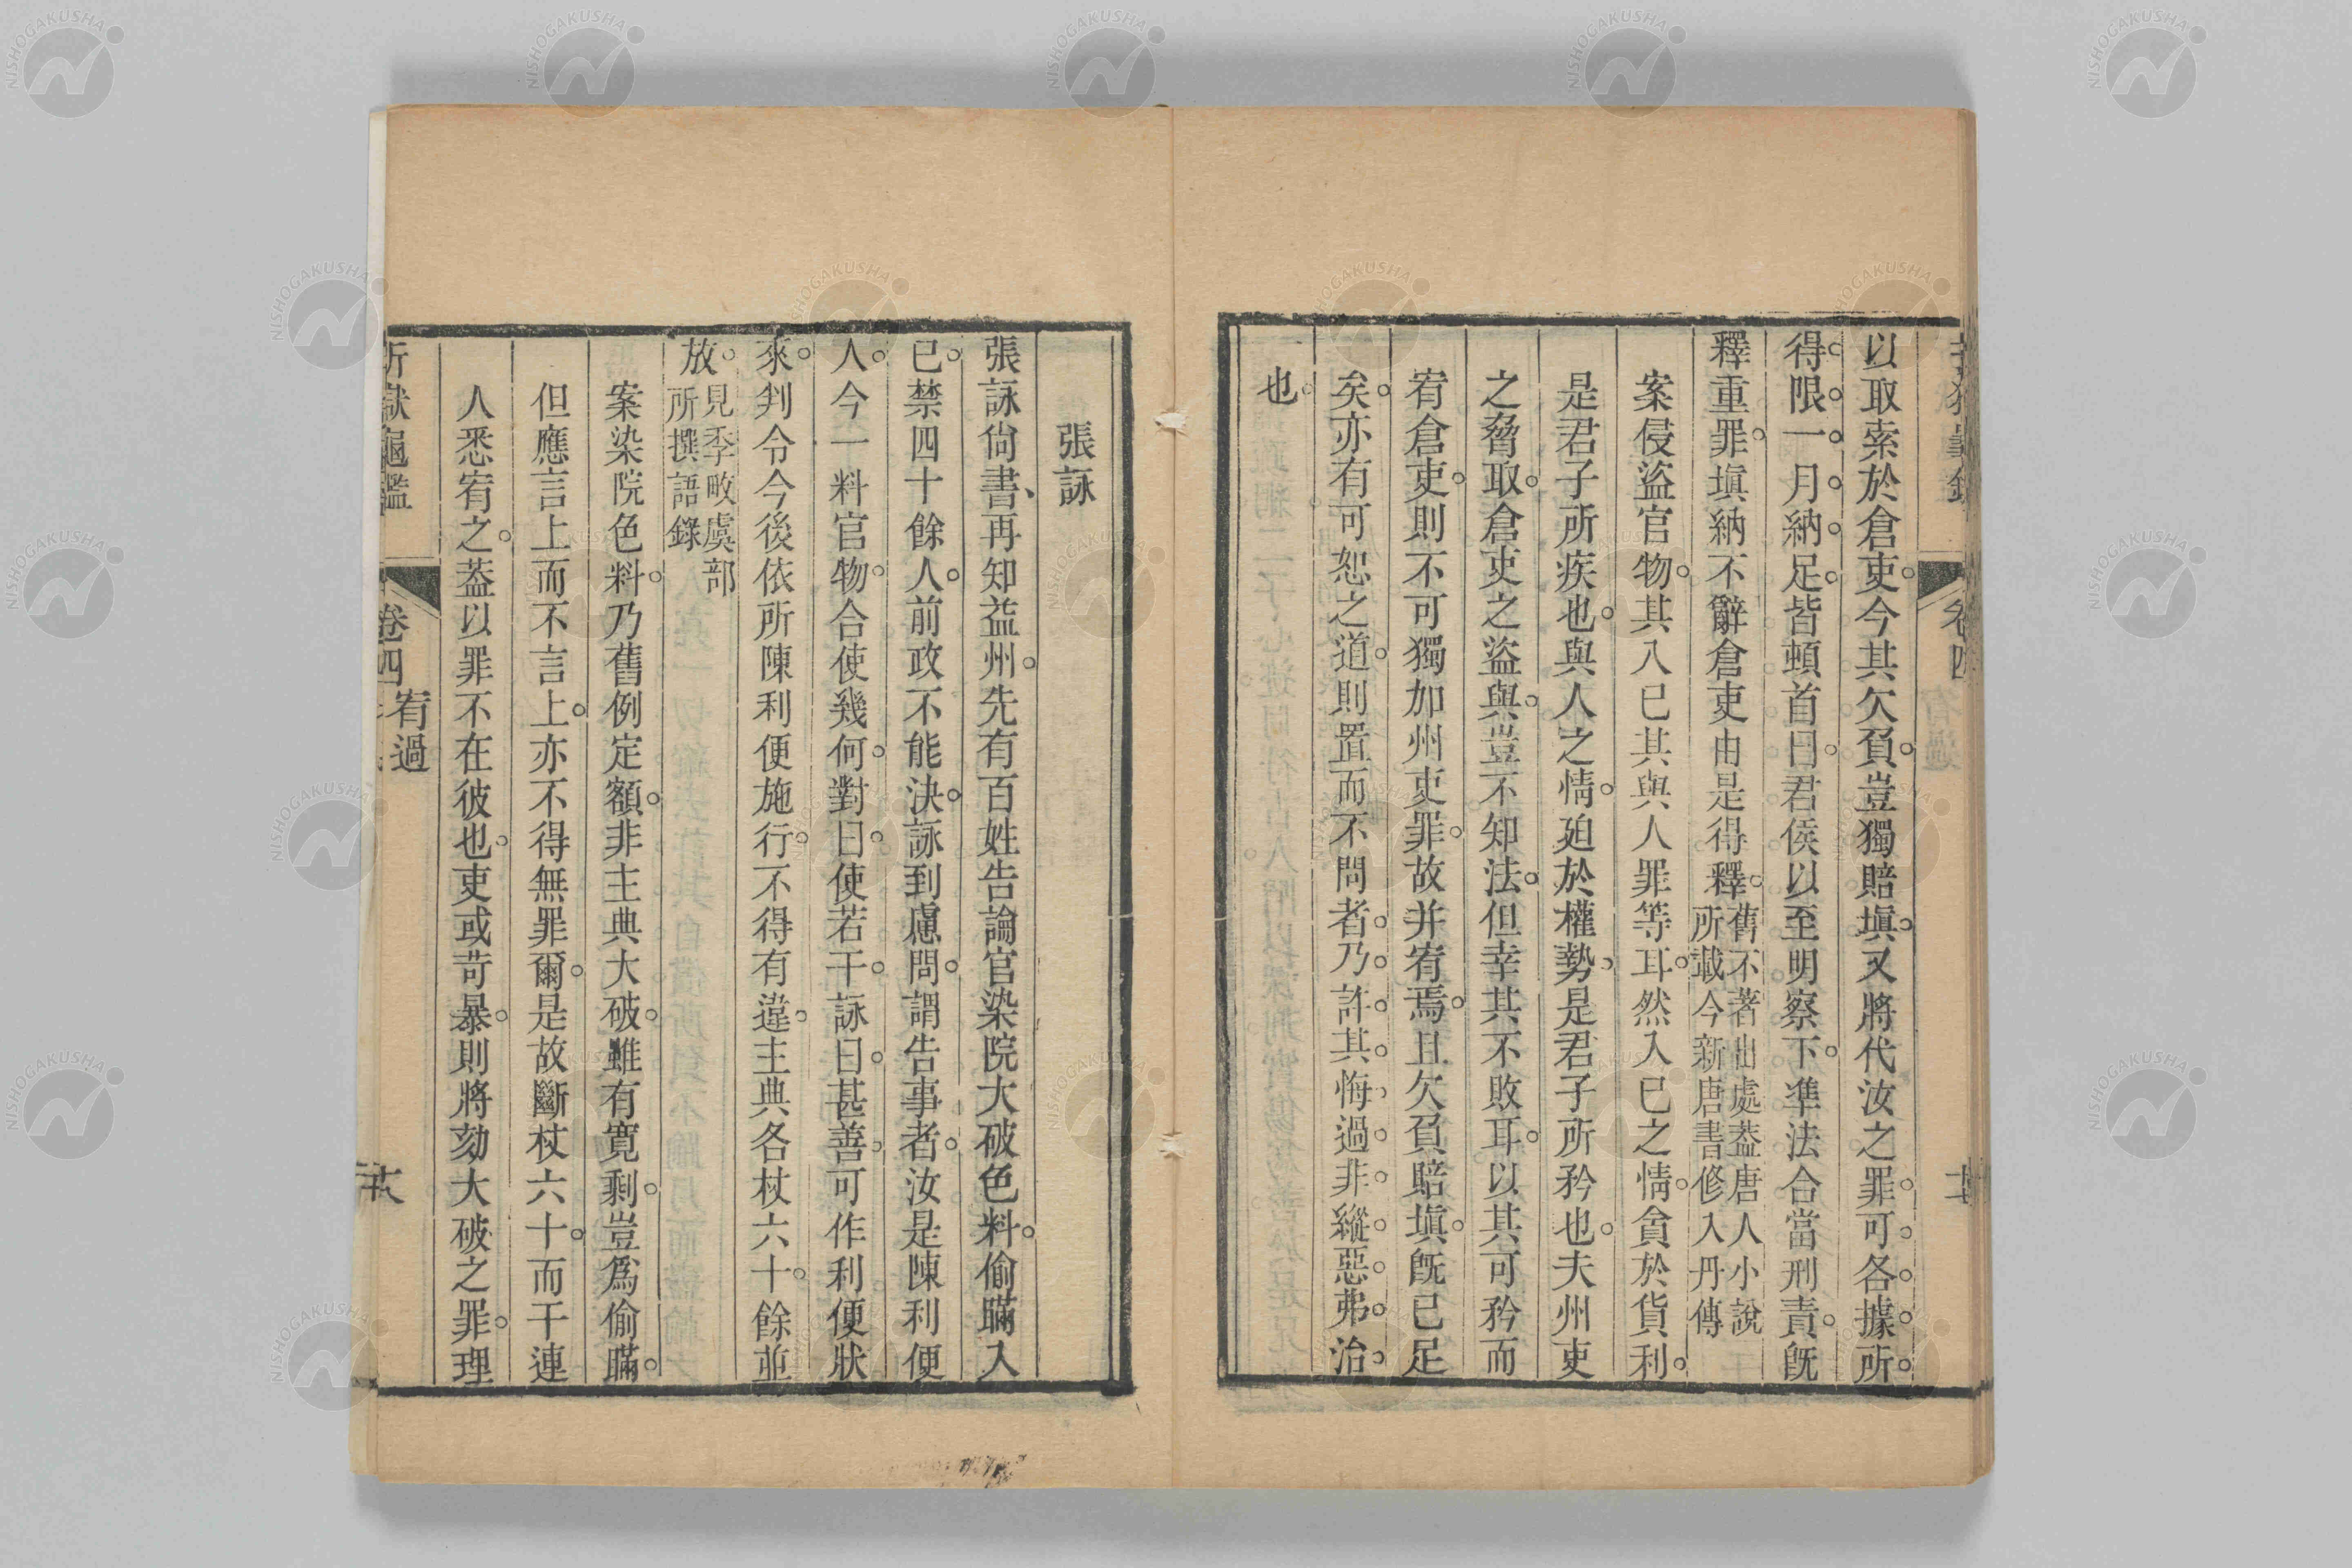 以取索於倉吏。今其欠負。豈獨賠塡。又將代汝之罪。可。各。據。所。
得。限。一。月。納。足。皆頓首曰。君侯以至明察下。準法合當刑責。旣
釋重罪。塡納不辭倉吏由是得釋。舊不著出處葢唐人小說
所載今新唐書修入丹傳
案侵盜官物。其入已其與人罪等耳。然入已之情。貪於貨利。
是君子所疾也。與人之情。廹於權勢。是君子所矜也。夫州吏
之脅取。倉吏之盜與。豈不知法。但幸其不敗耳。以其可矜而
宥倉吏。則不可獨加州吏罪。故并宥焉。且欠負賠塡。旣已足
矣。亦有可恕之道。則置而不問者。乃。許。其。悔。過。非。縱。惡。弗。治。
也。
張詠
張詠尙書、再知益州。先有百姓告論官染院大破色料。偷瞞入
已。禁四十餘人。前政不能決。詠到慮問。謂告事者。汝是陳利便
人。今一料官物。合使幾何。對曰。使若干。詠曰。甚善。可作利便狀
來。判令今後依所陳利便施行。不得有違。主典各杖六十。餘並
放。見李畋虞部
所撰語錄
案染院色料。乃舊例定額。非主典大破。雖有寬剩。豈爲偷瞞。
但應言上而不言上。亦不得無罪爾。是故斷杖六十。而干連
人悉宥之。葢以罪不在彼也。吏或苛暴。則將劾大破之罪。理
折獄龜鑑
卷四
宥過